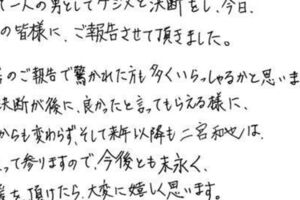 一人の男としてケジメと決断をし、今日、
の皆様に、ご報告させて頂きました。
のご報告で驚かれた方も多くいらっしゃるかと思いま
決断が後に、良かったと言ってもらえる様に、
からも変わらず、そして来年以降も二宮和也は、
って参りますので、今後とも末永く、
を頂けたら、大変に嬉しく思います。